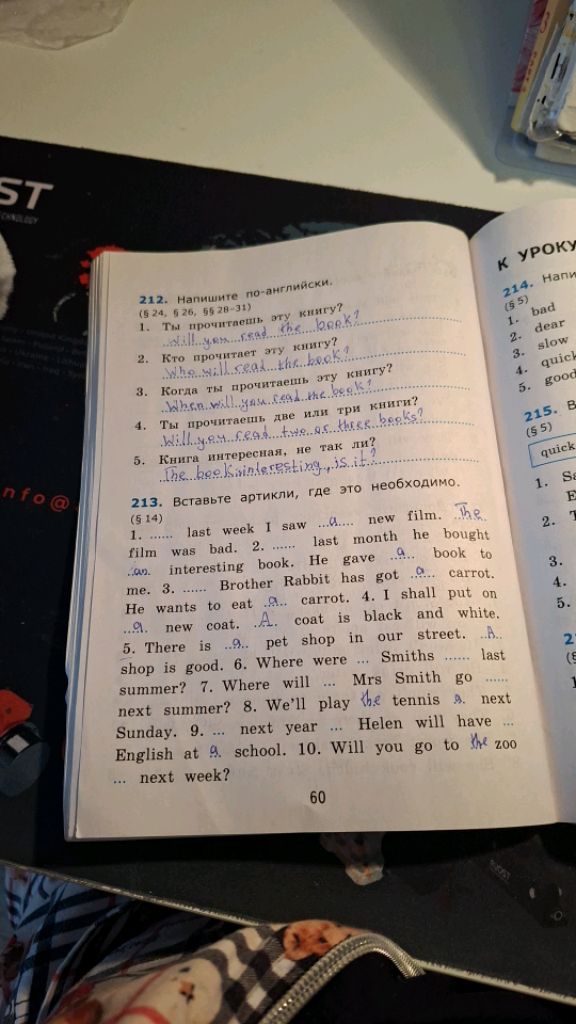 ST
CHNOLOGY
nfo@
212. Напишите по-английски.
(§ 24, § 26, §§ 28–31)
1. Ты прочитаешь эту книгу?
Will you read the book?
2. Кто прочитает эту книгу?
Who will read the book?
3. Когда ты прочитаешь эту книгу?
When will you read the book?
4. Ты прочитаешь две или три книги?
Will you read two or three books?
5. Книга интересная, не так ли?
The book interesting, is it?
213. Вставьте артикли, где это необходимо.
(§ 14)
1. ...... last week I saw ..a.... new film. The
film was bad. 2. ...... last month he bought
..an. interesting book. He gave ..a... book to
me. 3. ...... Brother Rabbit has got .a... carrot.
He wants to eat .a... carrot. 4. I shall put on
..a. new coat. .A.. coat is black and white.
5. There is ..a.. pet shop in our street. .A..
shop is good. 6. Where were ... Smiths ...... last
summer? 7. Where will ... Mrs Smith go ......
next summer? 8. We'll play the tennis a. next
Sunday. 9. ... next year ... Helen will have ...
English at a. school. 10. Will you go to the zoo
... next week?
60
К УРОКУ
214. Напи
(§ 5)
1. bad
2. dear
3. slow
4. quick
5. good
215. В
(§ 5)
quick
1. Sa
E
2. T
3.
4.
5.